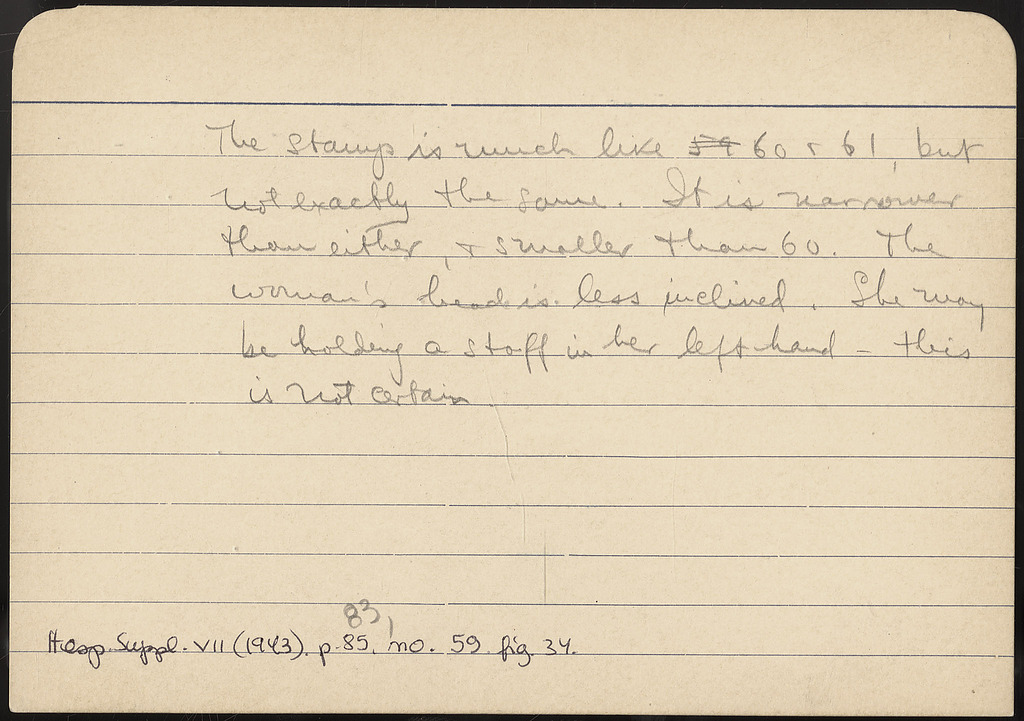 The stamp is much like 59 60 + 61, but
not exactly the same. It is narrower
than either, + smaller than 60. The
woman's head is less inclined. She may
be holding a staff in her left hand – this
is not certain
83,
Hesp. Suppl. VII (1943). p. 85, no. 59 fig. 34.